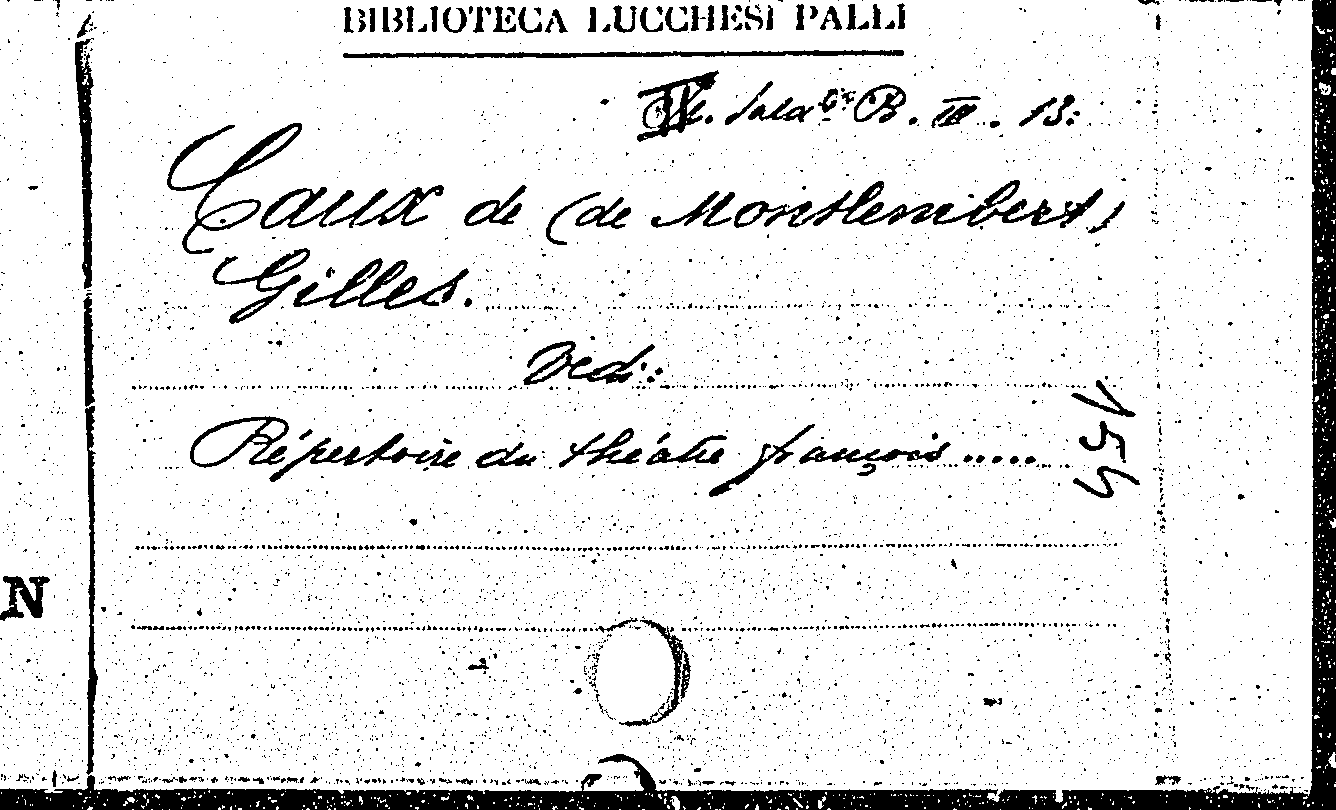 BIBLIOTECA LUCCHESI PALLI
Sala B. III. 13:
Caux de (de Montlembert)
Gilles.
Vedi:
Répertoire du théâtre françois .....
N